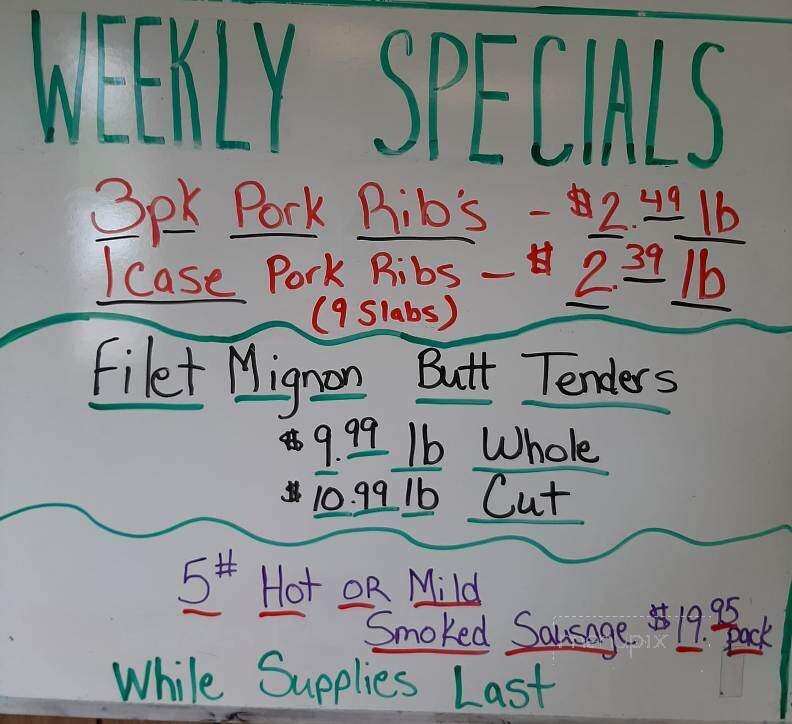 WEEKLY SPECIALS
3pk Pork Rib's - $2.49 lb
1case Pork Ribs - $2.39 lb
(9 Slabs)
Filet Mignon Butt Tenders
$9.99 lb Whole
$10.99 lb Cut
5# Hot OR Mild
Smoked Sausage $19.95 pack
While Supplies Last